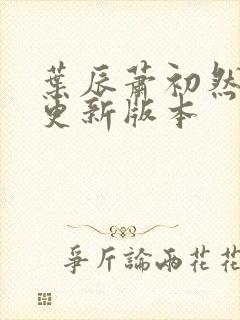 葉辰蕭初然
更新版本
爭斤論兩花花